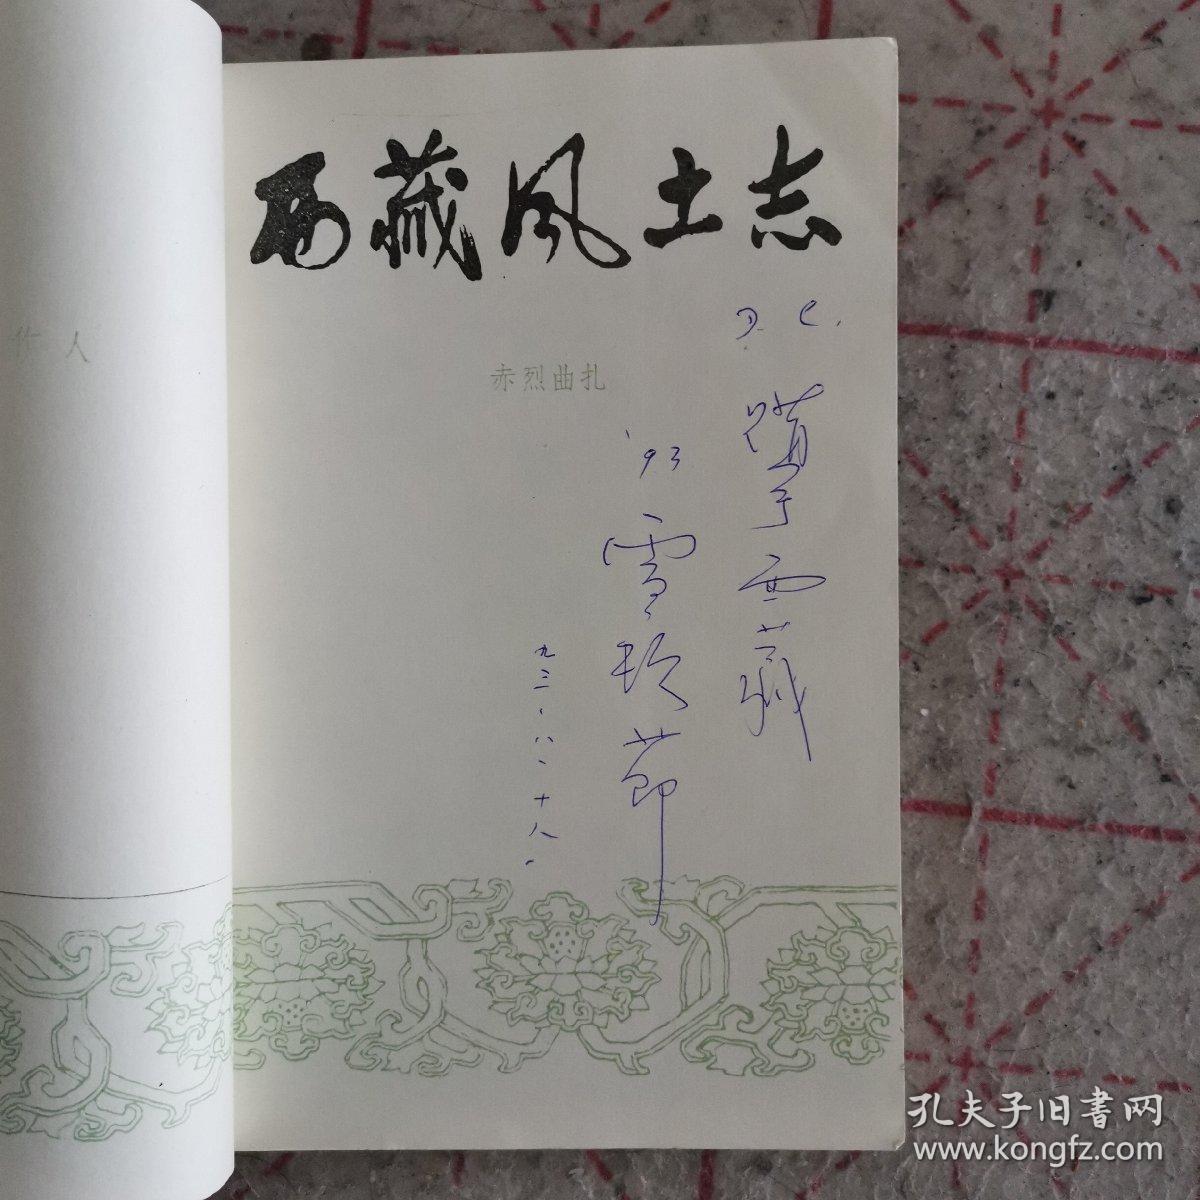 西藏风土志
赤烈曲扎
D. C.
购于西藏
'93
雪顿节
九三、八、十八、
作人
孔夫子旧书网
www.kongfz.com